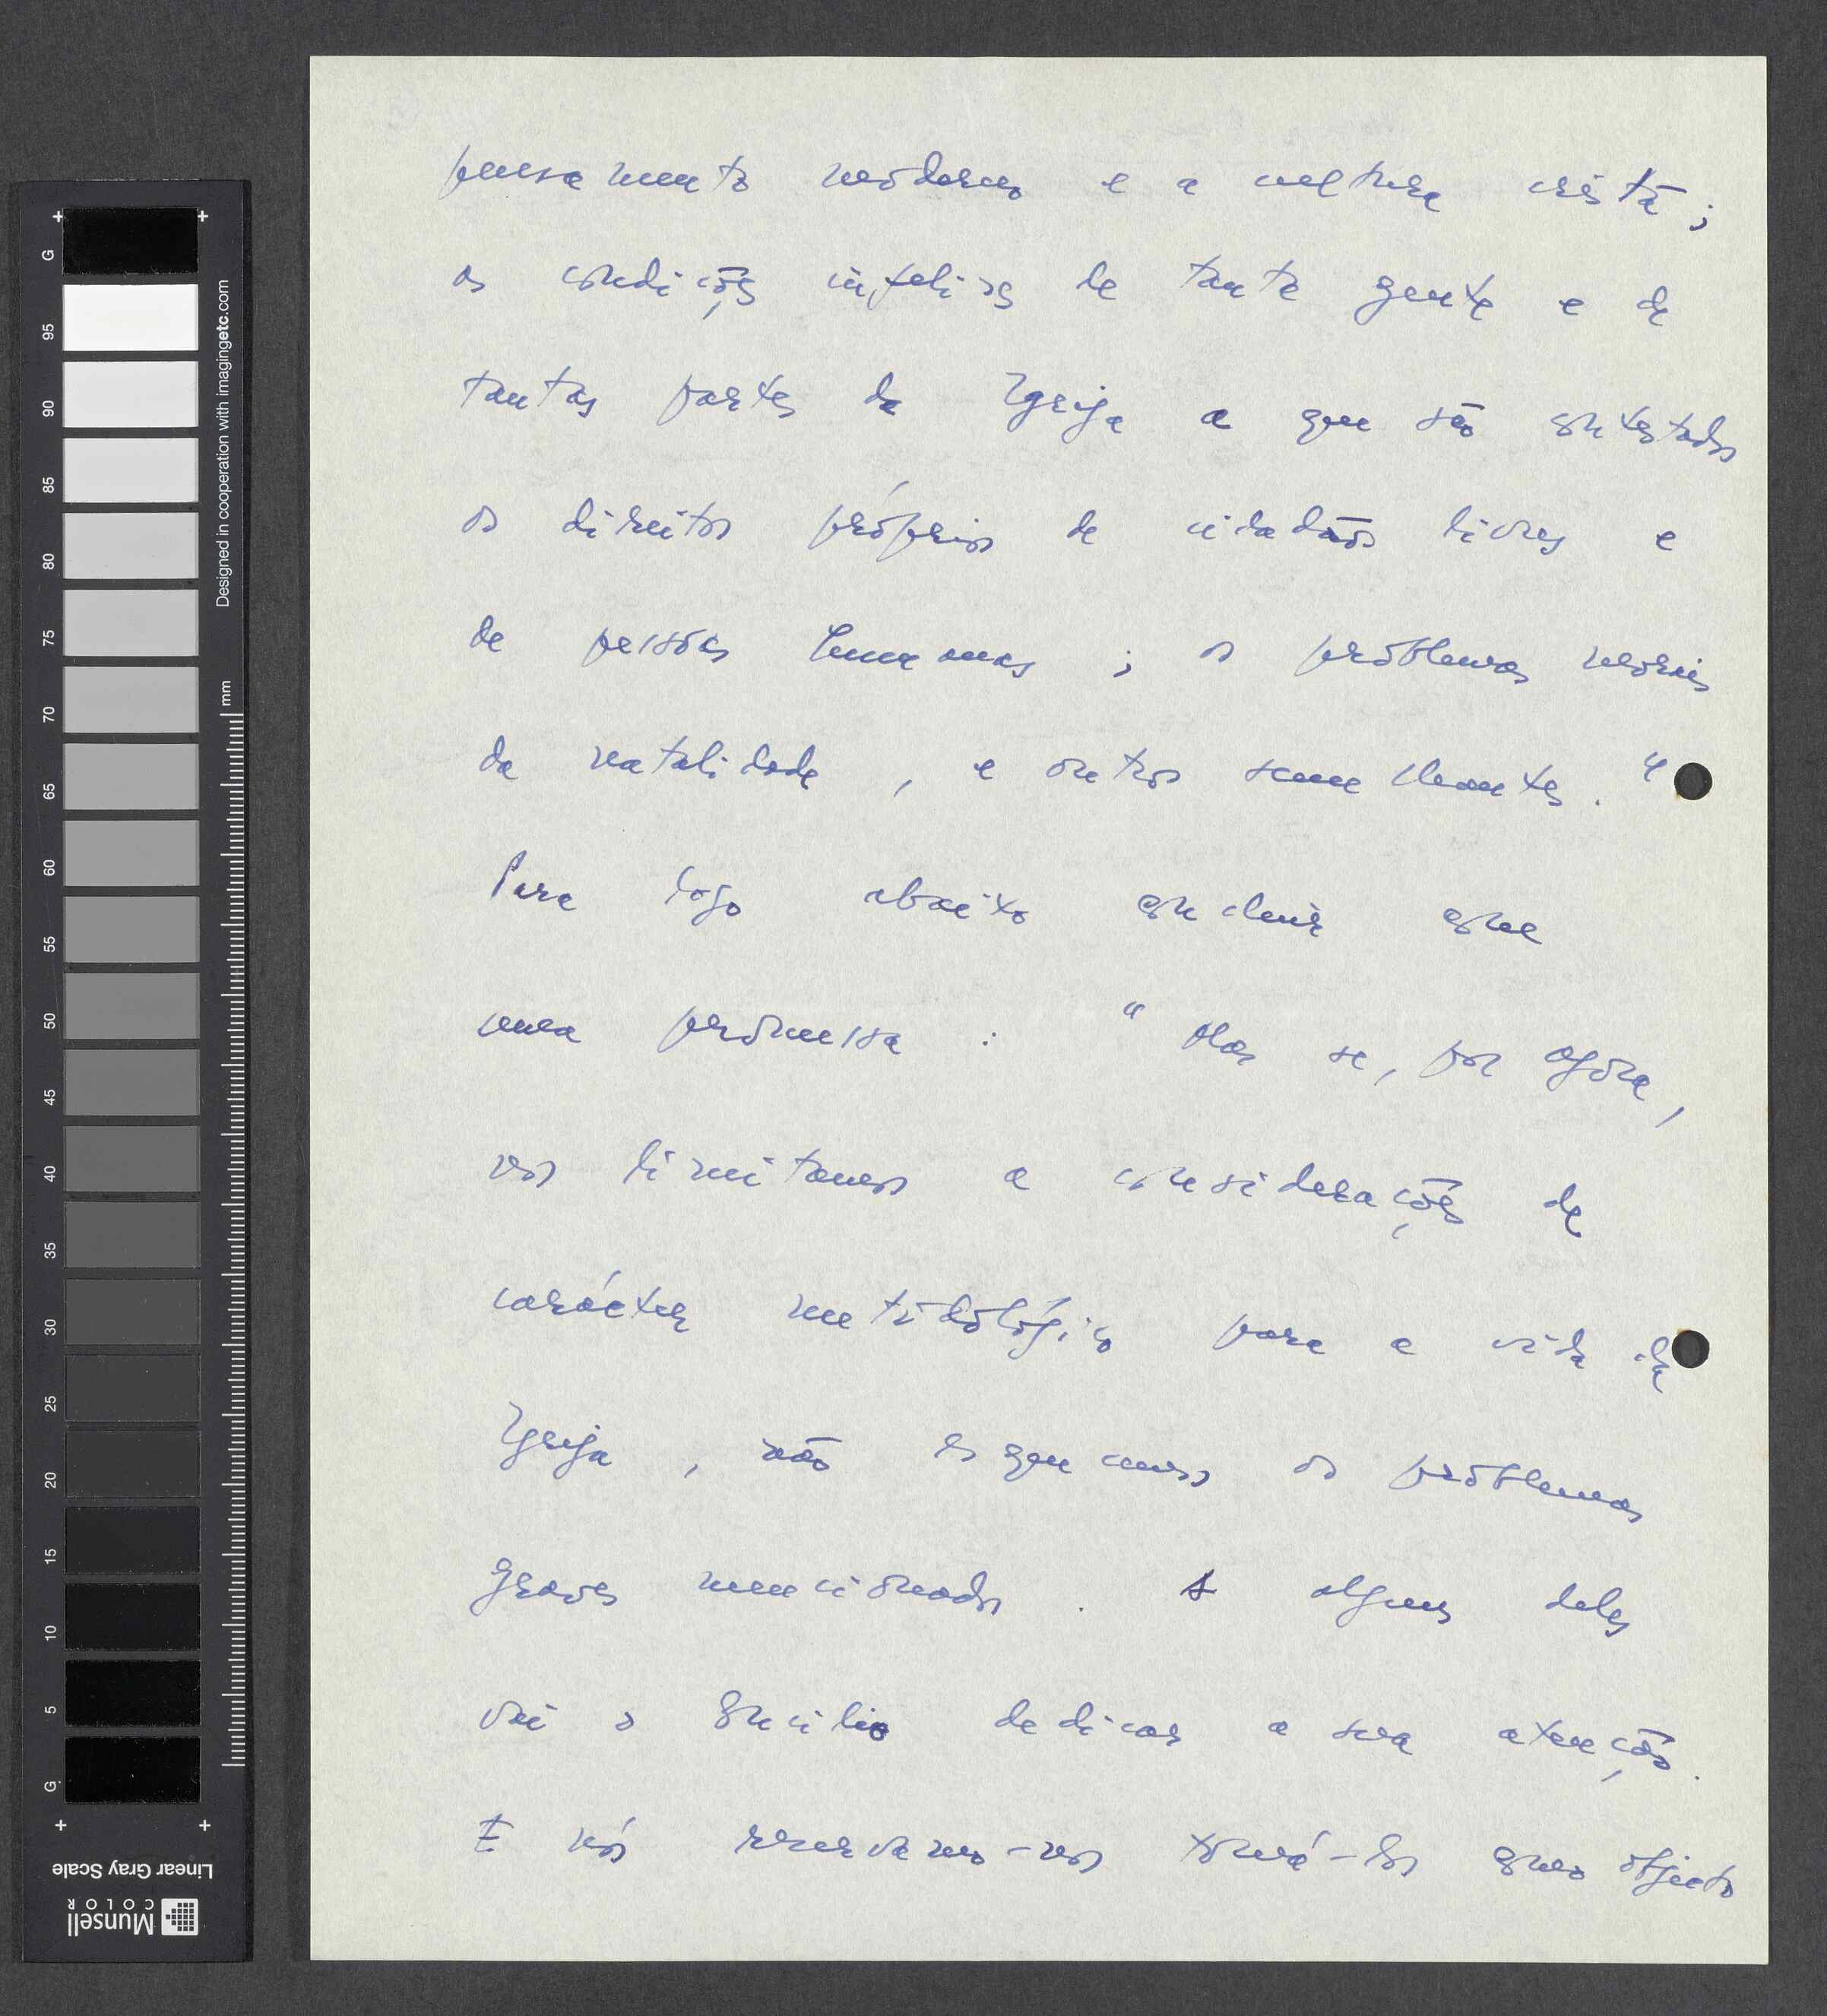 pensamento moderno e a cultura cristã;
as condições infelizes de tanta gente e de
tantas partes da Igreja a que são contestados
os direitos próprios de cidadãos livres e
de pessoas humanas; os problemas morais
da natalidade, e outros semelhantes."
Para logo abaixo concluir com
uma promessa: "Mas se, por agora,
nos limitamos a considerações de
carácter metodológico para a vida da
Igreja, não esquecemos os problemas
graves mencionados. A alguns deles
vai o Concílio dedicar a sua atenção.
E nós reservamo-nos tomá-los como objecto
G 95 90 85 80 75 70 65 60 55 50 45 40 35 30 25 20 15 10 5 G
Designed in cooperation with imagingetc.com
mm
Linear Gray Scale
Munsell
COLOR